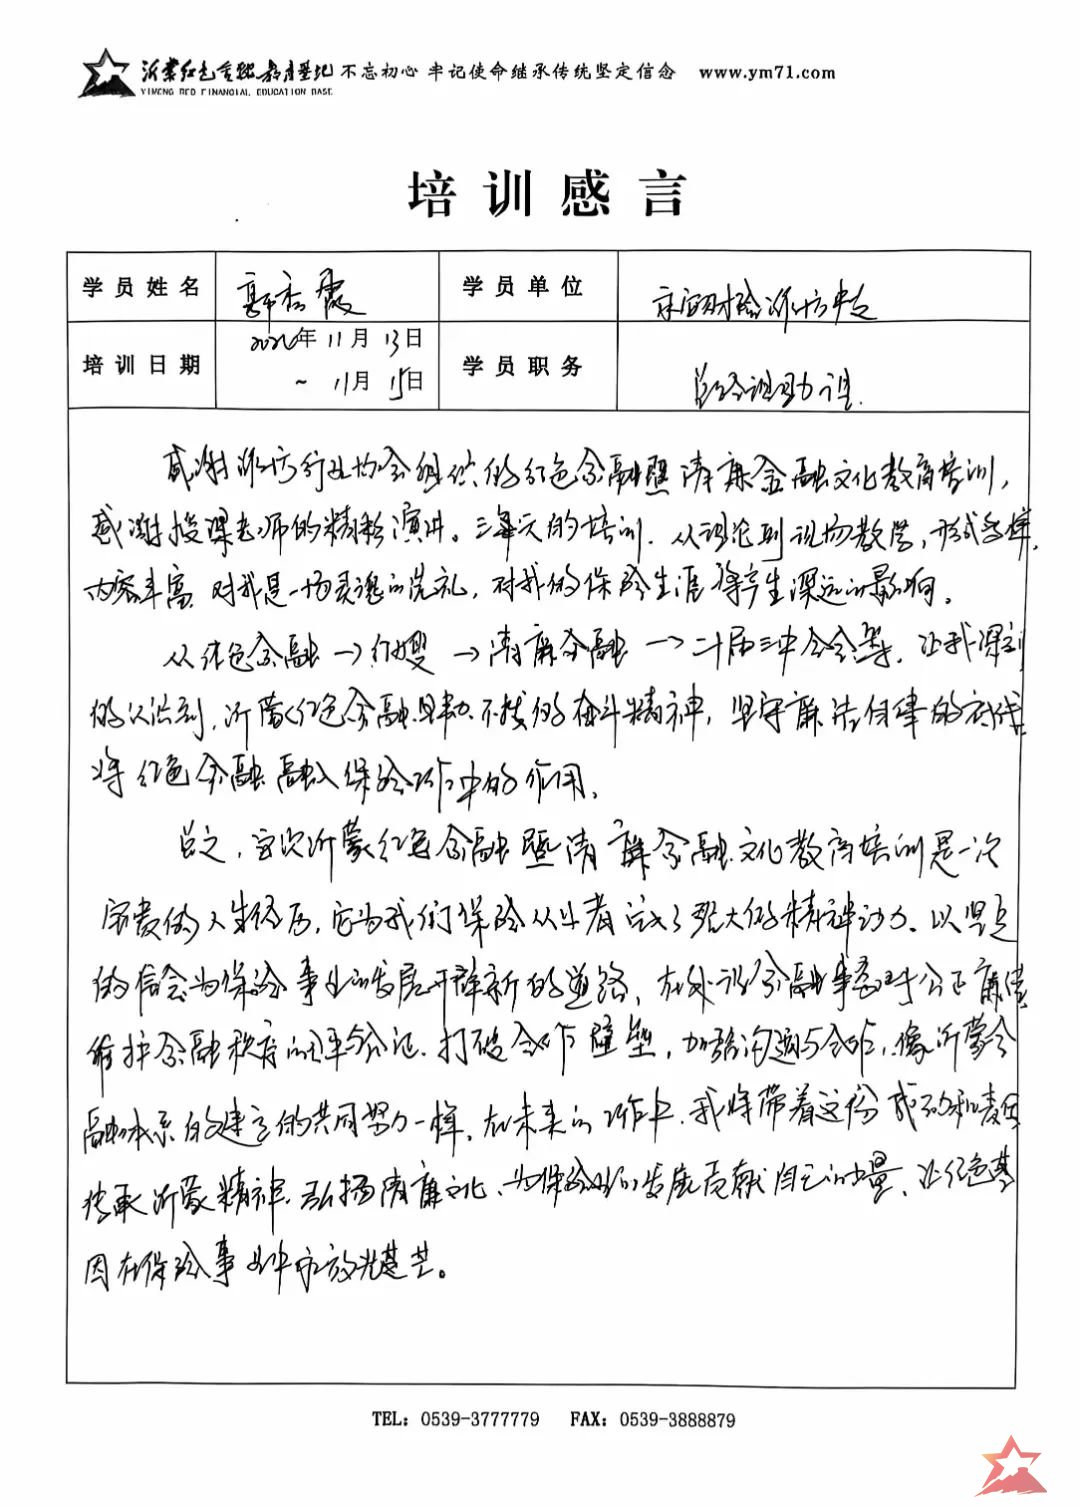 沂蒙红色金融教育基地 不忘初心 牢记使命继承传统坚定信念 www.ym71.com
YIMENG RED FINANCIAL EDUCATION BASE
培训感言
学员姓名 郭秀霞 学员单位 财险潍坊中支
培训日期 年11月13日 ~ 11月15日 学员职务 总经理助理
感谢潍坊行业协会组织的红色金融暨清廉金融文化教育培训，
感谢授课老师的精彩演讲。三天的培训，从理论到现场教学，形式多样，
内容丰富，对我是一场灵魂的洗礼，对我的保险生涯将产生深远的影响。
从红色金融→红嫂→清廉金融→二十届三中全会等，让我深刻
的认识到，沂蒙红色金融坚韧不拔的奋斗精神，坚守廉洁自律的底线，
将红色金融融入保险工作中的作用。
总之，这次沂蒙红色金融暨清廉金融文化教育培训是一次
宝贵的人生经历，它为我们保险从业者注入了强大的精神动力。以坚定
的信念为保险事业的发展开辟新的道路，在处理金融事务时公正廉洁
维护金融秩序的公平与公正，打破合作壁垒，加强沟通与合作，像沂蒙金
融体系的建立的共同努力一样，在未来的工作中，我将带着这份感动和责任
传承沂蒙精神，弘扬清廉文化，为保险业的发展贡献自己的力量，让红色基
因在保险事业中永放光芒。
TEL: 0539-3777779 FAX: 0539-3888879